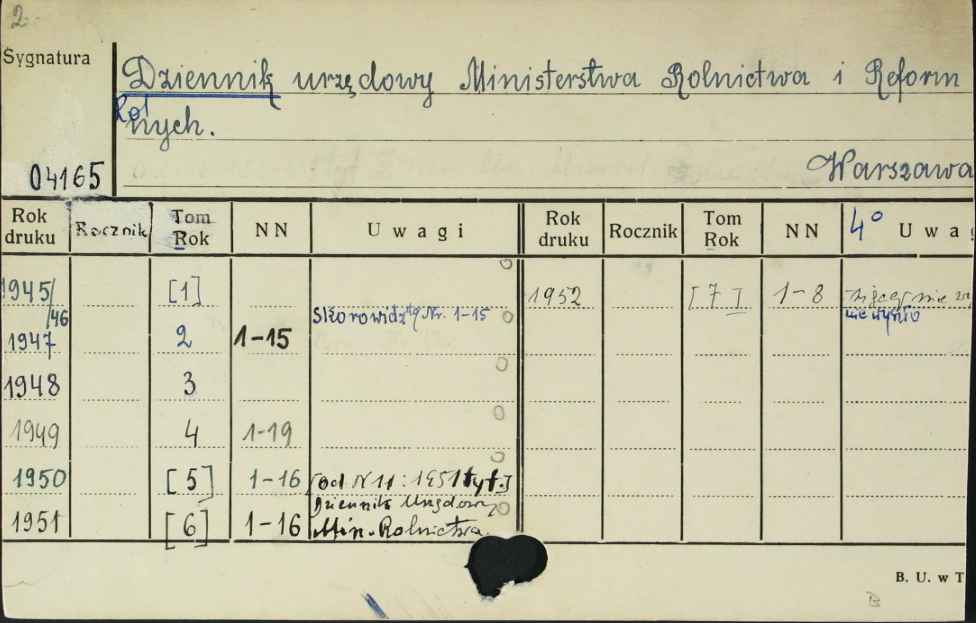 2
Sygnatura
Dziennik urzędowy Ministerstwa Rolnictwa i Reform
Rol
nych.
04165
Warszawa
Rok druku Rocznik Tom Rok NN Uwagi Rok druku Rocznik Tom Rok NN 4° Uwag
1945/46 [1] 1952 [7] 1-8
Skorowidz Nr. 1-15
1947 2 1-15
1948 3
1949 4 1-19
1950 [5] 1-16 [od N 11: 1951 tyt.]
Dziennik Urzędowy
1951 [6] 1-16 Min. Rolnictwa.
B. U. w T
B